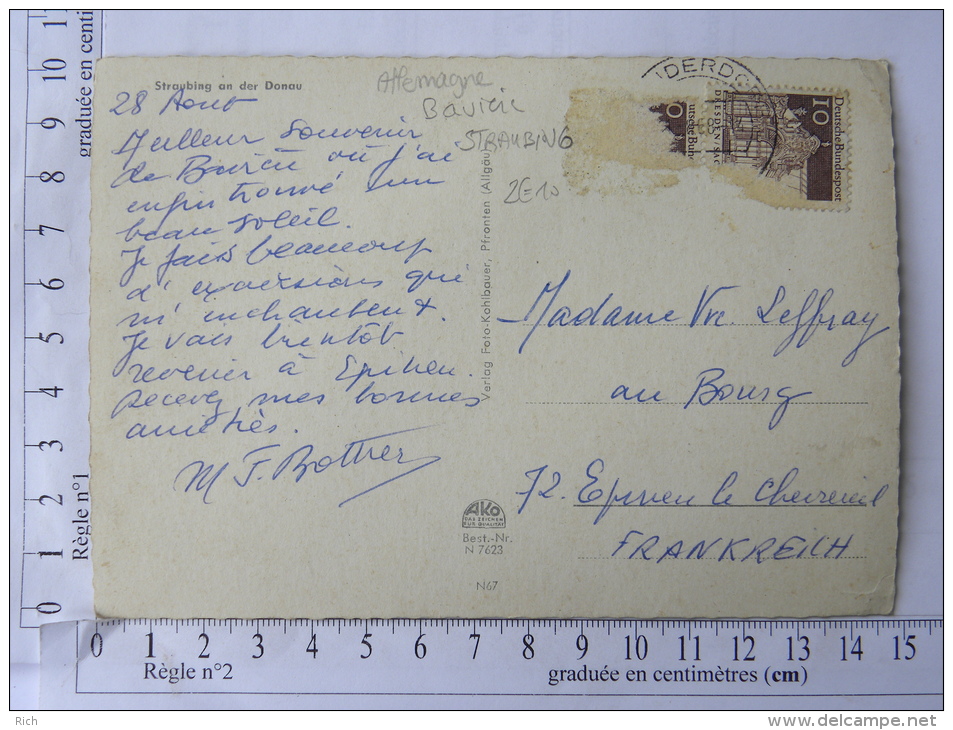 Straubing an der Donau
28 Aout
Meilleur souvenir
de Bavière où j'ai
enfin trouvé un
beau soleil.
Je fais beaucoup
d'excursions qui
m'enchantent.
Je vais bientôt
revenir à Epineu.
Recevez mes bonnes
amitiés.
M F.
Allemagne
Bavière
STRAUBING
2E10
Verlag Foto-Kohlbauer, Pfronten (Allgäu
AKO
DAS ZEICHEN
FÜR QUALITÄT
Best.-Nr.
N 7623
N67
DERDO
DRESDEN SAC
10
Deutsche Bundespost
utsche Bun
0
Madame Vve. Leffray
au Bourg
72. Epineu le Chevreuil
FRANKREICH
Règle n°1
graduée en centi
0 1 2 3 4 5 6 7 8 9 10 11
0 1 2 3 4 5 6 7 8 9 10 11 12 13 14 15
Règle n°2
graduée en centimètres (cm)
Rich
www.delcampe.net